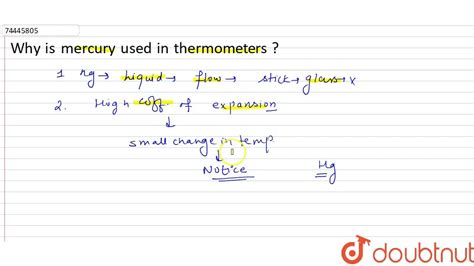 74445805
Why is mercury used in thermometers ?
1 Hg → Liquid → flow → stick → glass → x
2. High coff. of expansion
↓
small change in temp
↓
Notice Hg
doubtnut